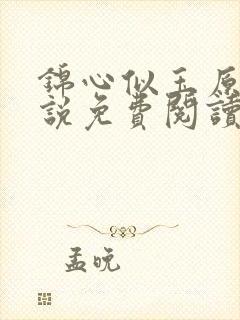 錦心似玉原
說免費閱讀
孟晚